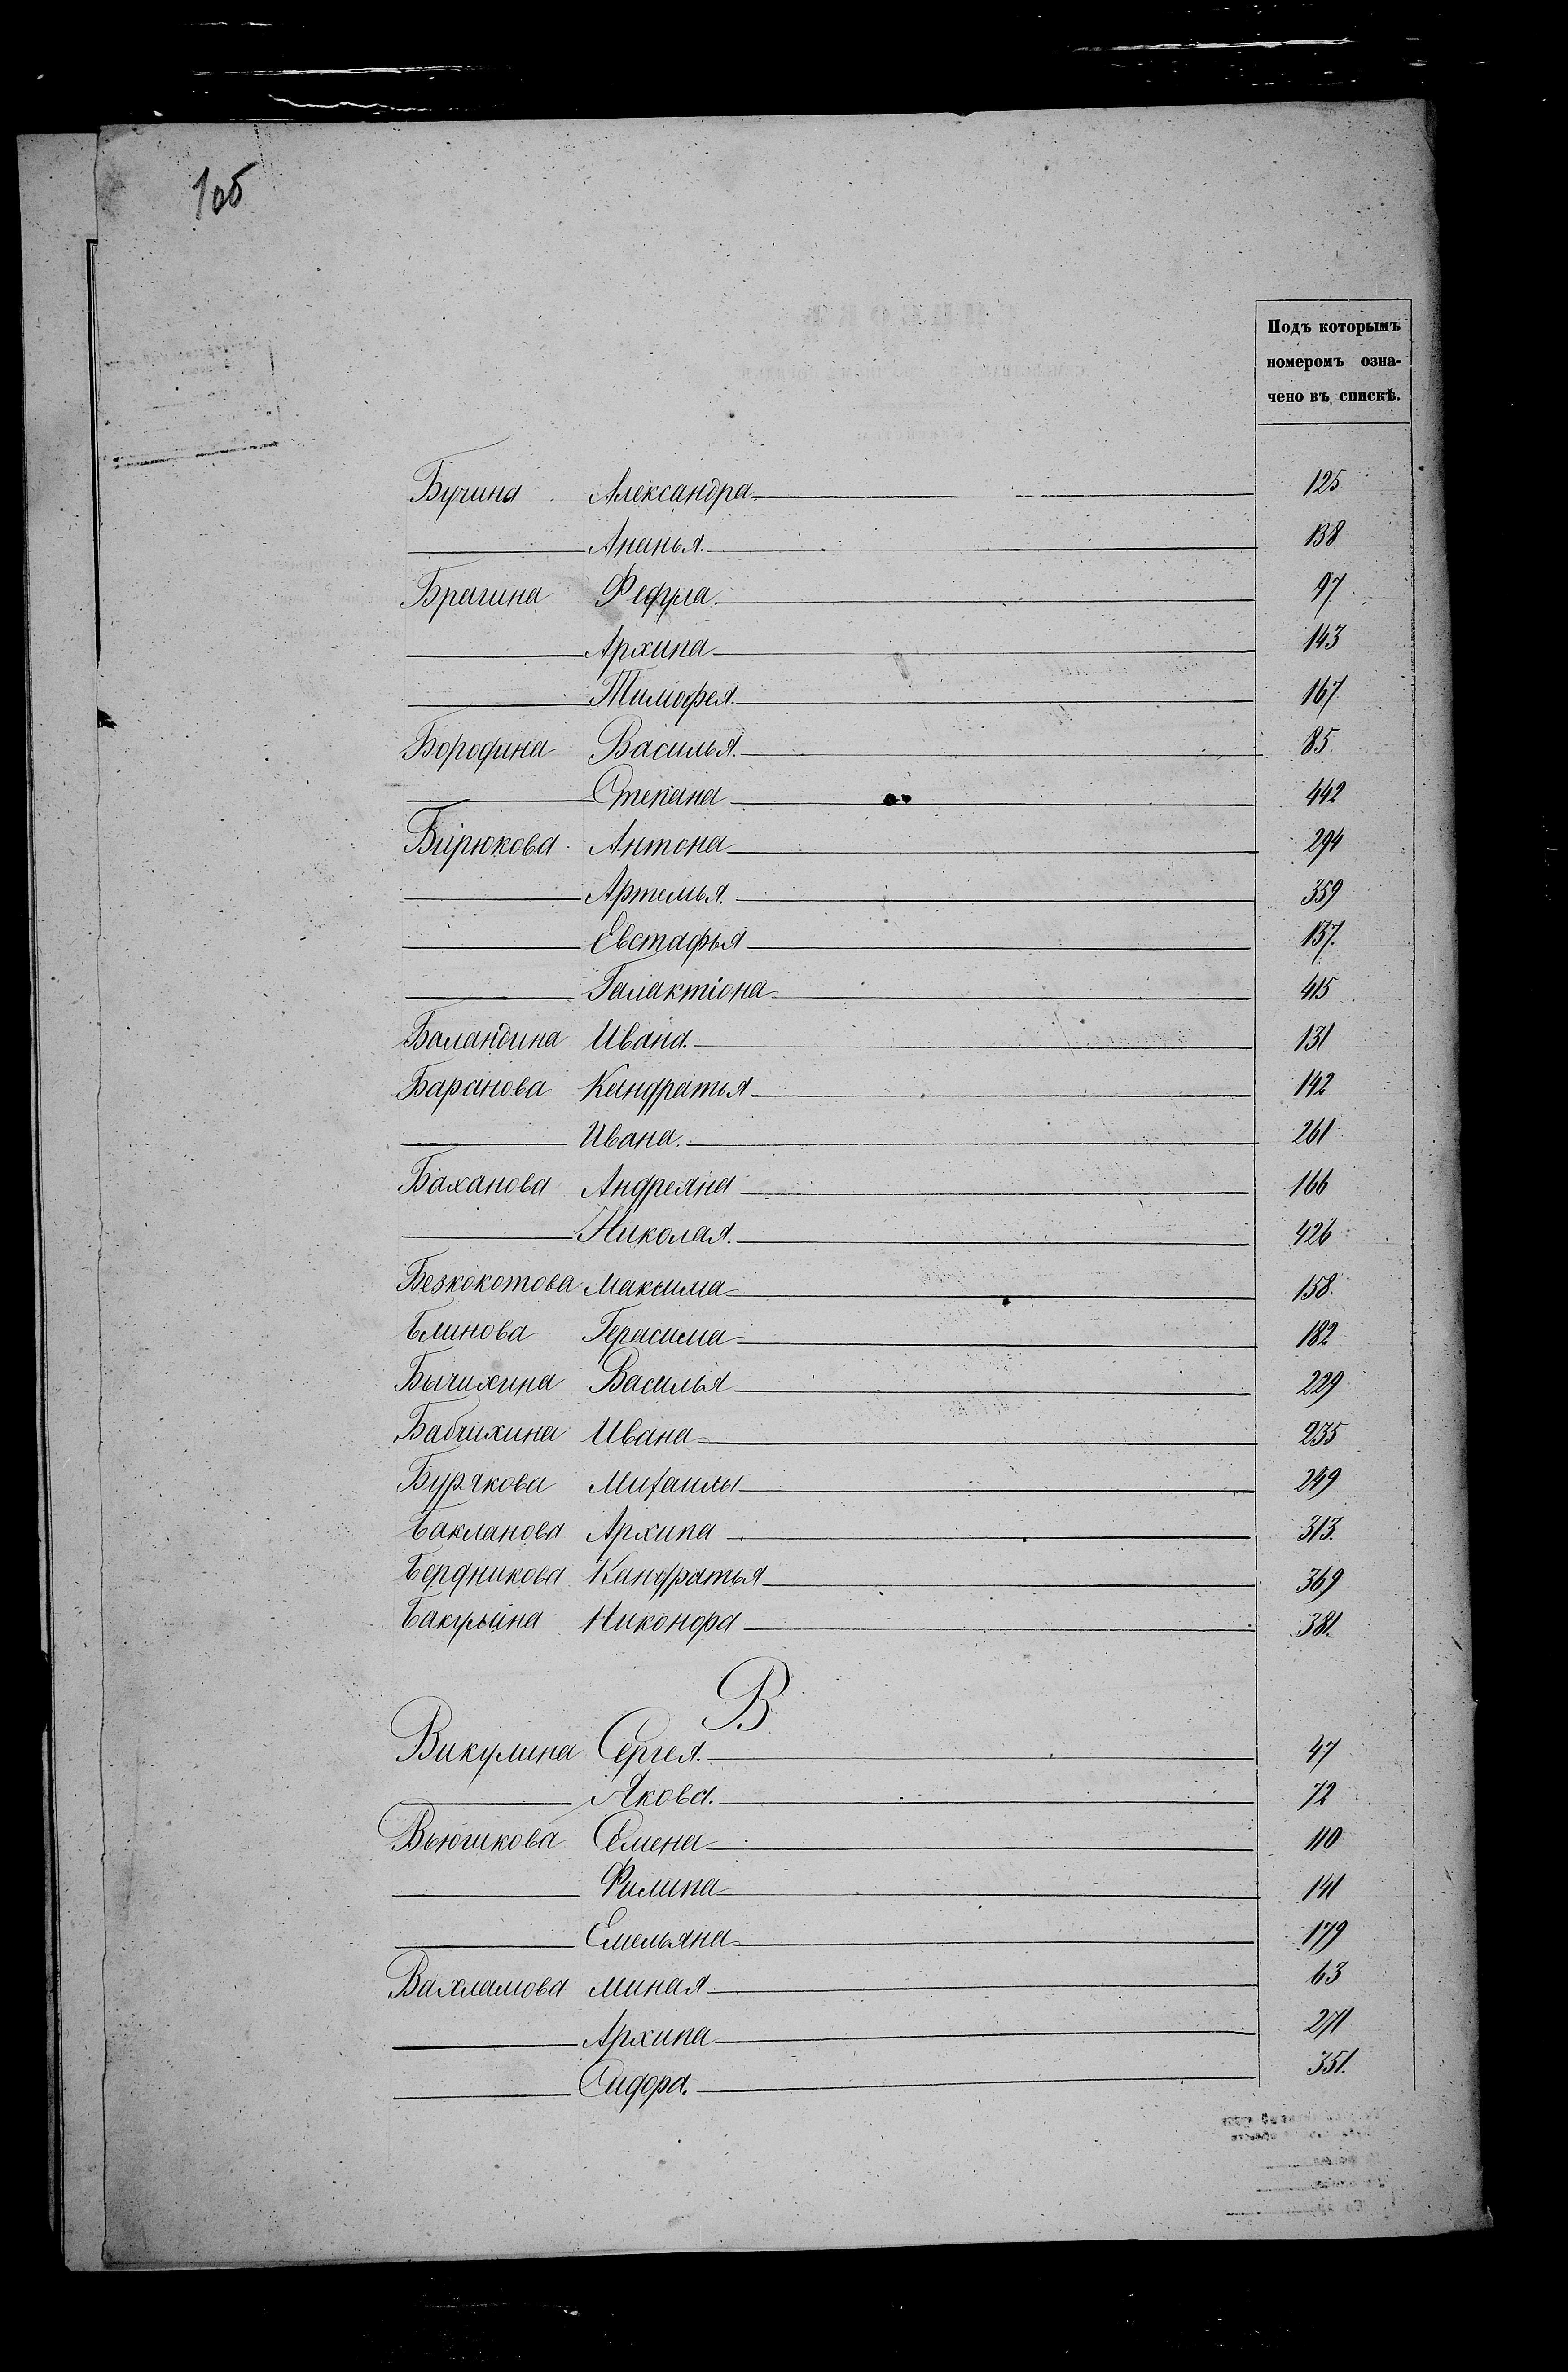 1об
Подъ которымъ
номеромъ озна-
чено въ спискѣ.
Бучина Александра 125
Ананья. 138
Брагина Федула 97
Архипа 143
Тимофея. 167
Бородина Василья. 85.
Степана 442
Бирюкова Антона 294
Артемья. 359
Евстафья 157.
Галактіона 415
Баландина Ивана. 131
Баранова Кандратья 142
Ивана. 261
Баханова Андреяна 166
Николая. 426
Безкокотова Максима 158.
Блинова Герасима 182
Бычихина Василья 229
Бабчихина Ивана 235
Бурякова Михаилы 249
Бакланова Архипа 313.
Бердникова Кандратья 369
Бакулина Никонора 381.
В
Викулина Сергея. 47
Якова. 72
Вьюшкова Семена 110
Филипа 141
Емельяна 179
Вахламова Миная 63
Архипа 271
Сидора. 351.